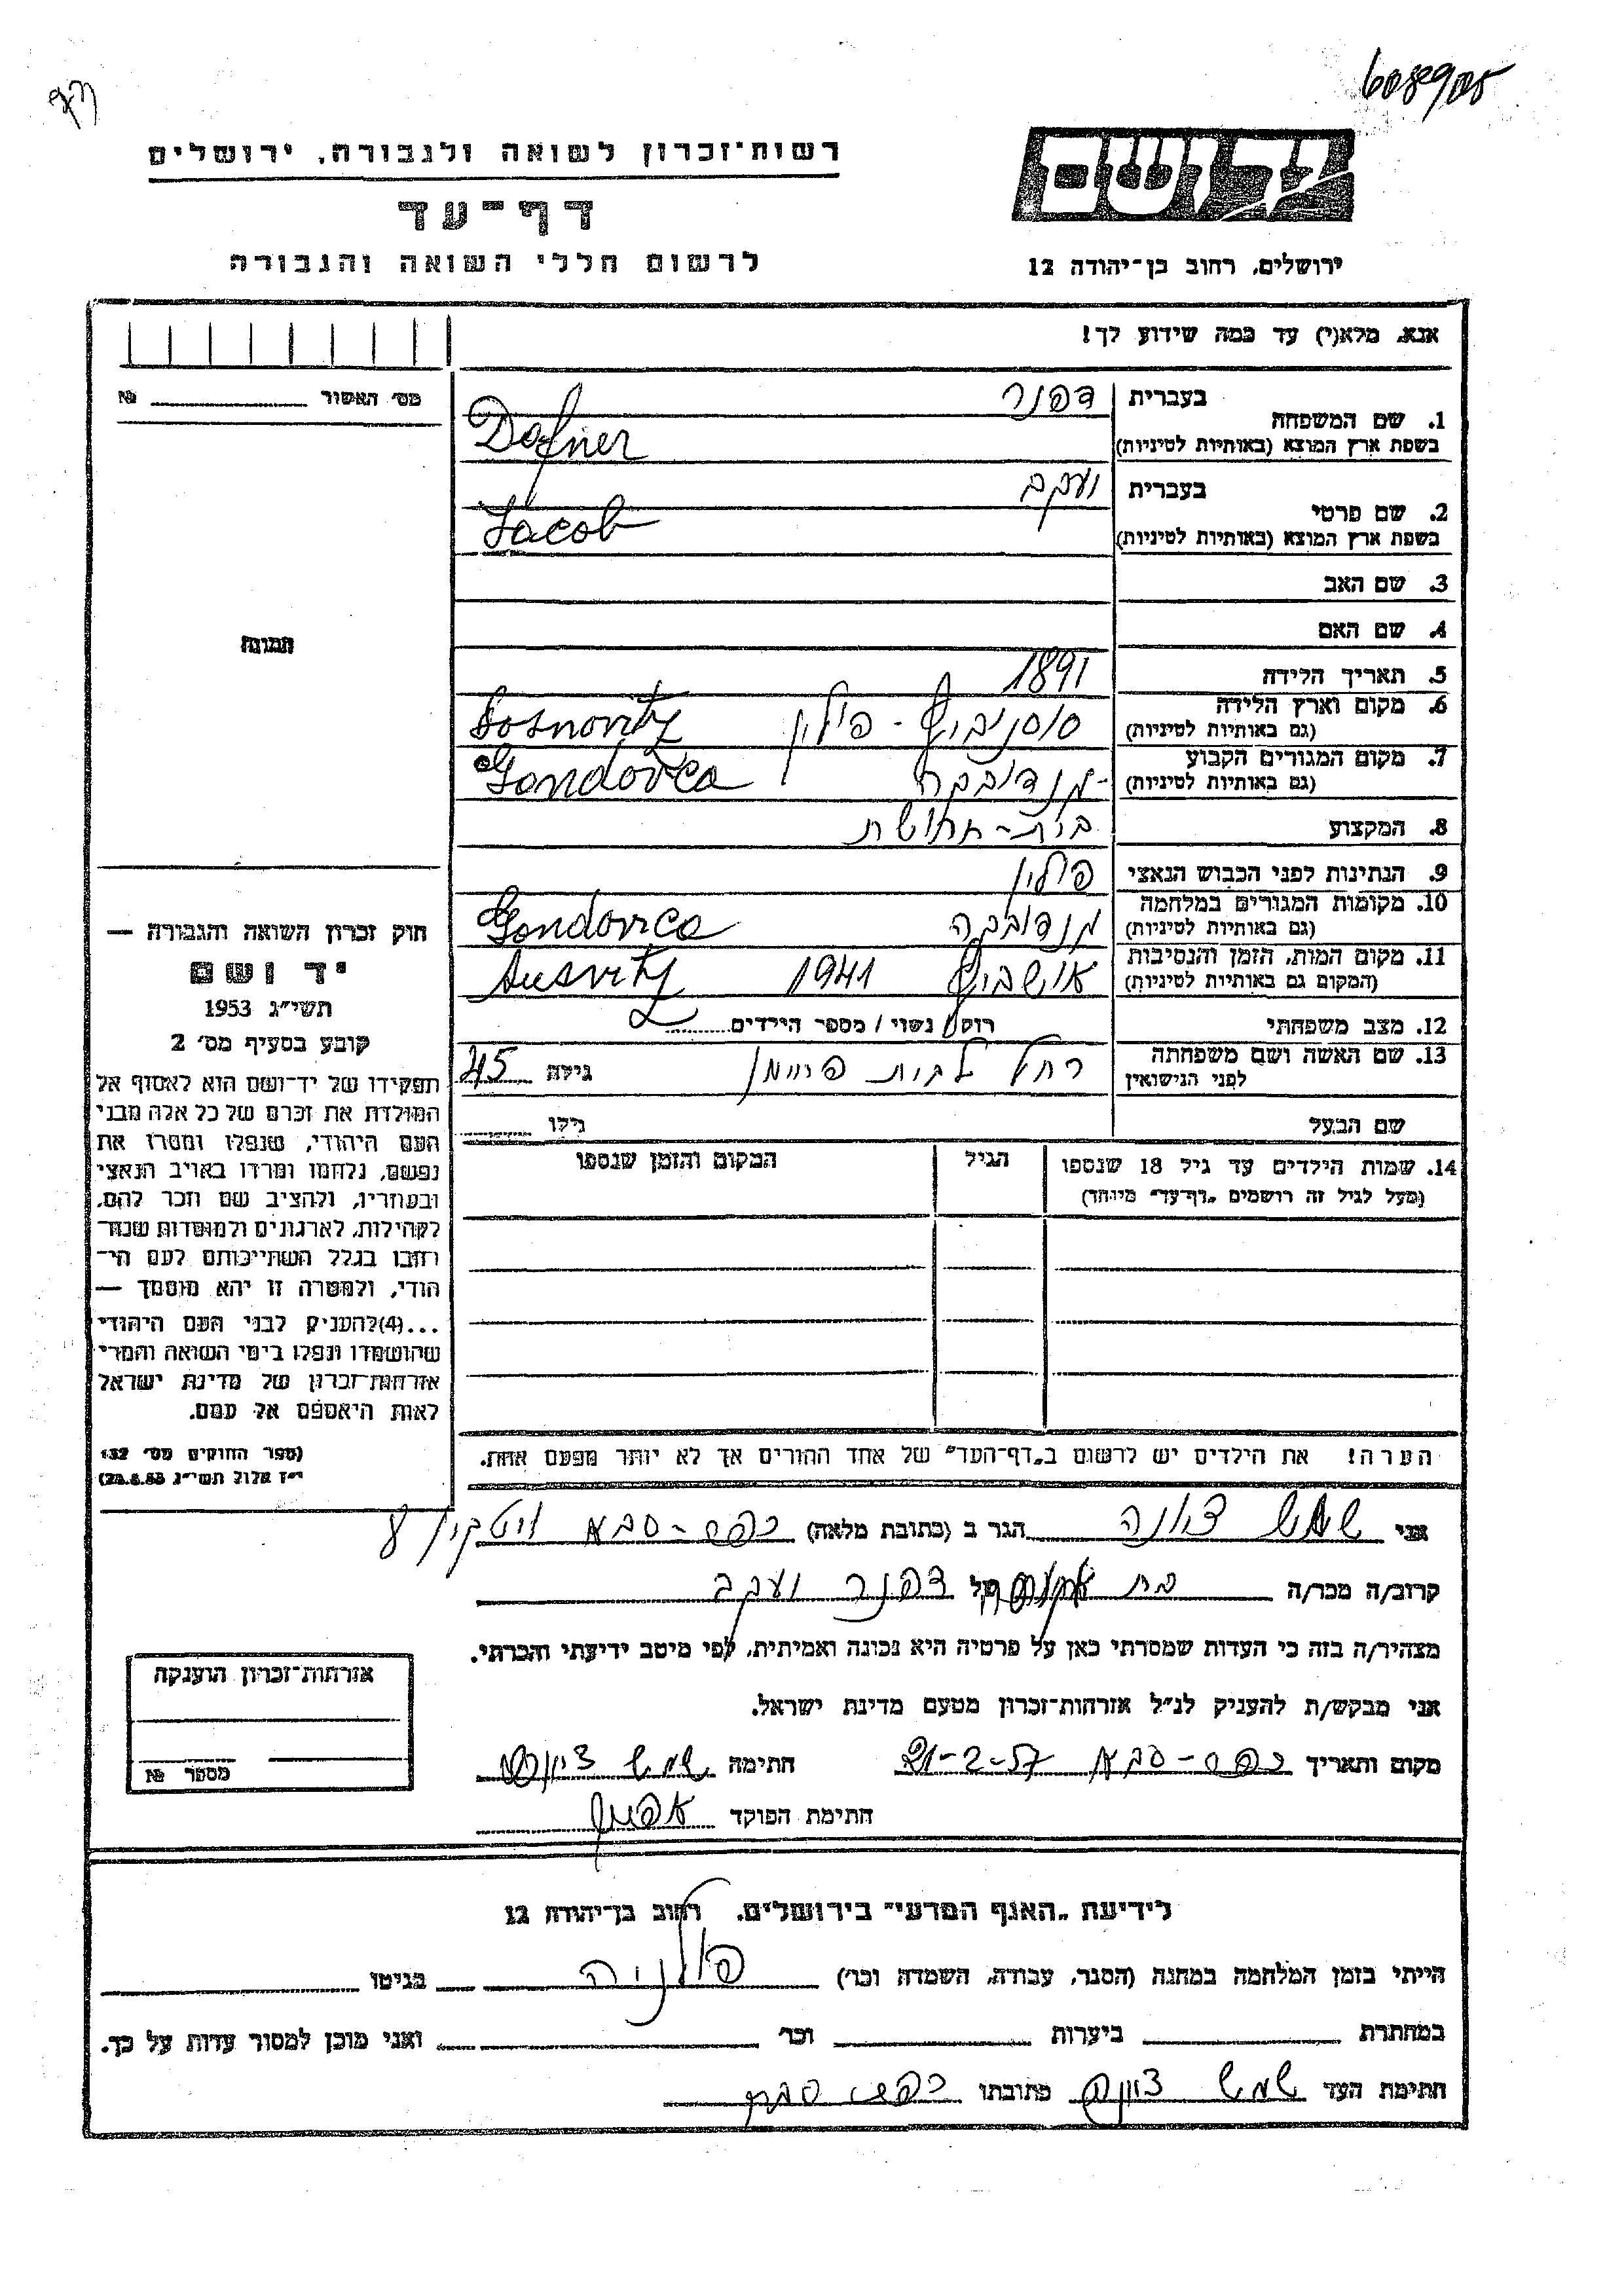 608905
רשות־זכרון לשואה ולגבורה, ירושלים
דף־עד
לרשום חללי השואה והגבורה
יד ושם
ירושלים, רחוב בן־יהודה 12
אנא, מלא(י) עד כמה שידוע לך!
מס׳ האשור № 
1. שם המשפחה
בעברית דפנר
בשפת ארץ המוצא (באותיות לטיניות) Dafner
2. שם פרטי
בעברית יעקב
בשפת ארץ המוצא (באותיות לטיניות) Jacob
3. שם האב
4. שם האם
5. תאריך הלידה 1891
6. מקום וארץ הלידה (גם באותיות לטיניות) סוסנוביץ - פולין Sosnovitz
7. מקום המגורים הקבוע (גם באותיות לטיניות) Gondovca
8. המקצוע בית-חרושת
9. הנתינות לפני הכבוש הנאצי פולין
10. מקומות המגורים במלחמה (גם באותיות לטיניות) Gondovca
11. מקום המות, הזמן והנסיבות (המקום גם באותיות לטיניות) אושביץ 1941 Ausvitz
12. מצב משפחתי רוסק / נשוי / מספר הילדים 2
13. שם האשה ושם משפחתה לפני הנישואין רחל לבית גילה 45
שם הבעל גילו
14. שמות הילדים עד גיל 18 שנספו הגיל המקום והזמן שנספו
(מעל לגיל זה רושמים „דף־עד״ מיוחד)
הערה! את הילדים יש לרשום ב„דף־העד״ של אחד ההורים אך לא יותר מפעם אחת.
תמונה
חוק זכרון השואה והגבורה —
יד ושם
תשי״ג 1953
קובע בסעיף מס׳ 2
תפקידו של יד־ושם הוא לאסוף אל
המולדת את זכרם של כל אלה מבני
העם היהודי, שנפלו ומסרו את
נפשם, נלחמו ומרדו באויב הנאצי
ובעוזריו, ולהציב שם וזכר להם,
לקהילות, לארגונים ולמוסדות שנח־
רחבו בגלל השתייכותם לעם הי־
הודי, ולמטרה זו יהא מוסמך —
...(4) להעניק לבני העם היהודי
שהושמדו ונפלו בימי השואה והמרי
אזרחות־זכרון של מדינת ישראל
לאות היאספם אל עמם.
(ספר החוקים מס׳ 132
י״ז אלול תשי״ג 28.8.53)
אני שמש ציונה הגר ב (כתובת מלאה) כפר-סבא ויטקין
קרוב/ה מכר/ה בת של דפנר יעקב
מצהיר/ה בזה כי העדות שמסרתי כאן על פרטיה היא נכונה ואמיתית, לפי מיטב ידיעתי והכרתי.
אני מבקש/ת להעניק לנ״ל אזרחות־זכרון מטעם מדינת ישראל.
מקום ותאריך כפר-סבא 21-2-57 חתימה שמש ציונה
חתימת הפוקד
אזרחות־זכרון הוענקה
מספר №
לידיעת „האגף המדעי״ בירושלים, רחוב בן־יהודה 12
הייתי בזמן המלחמה במחנה (הסגר, עבודה, השמדה וכו׳) פולניה בגיטו
במחתרת ביערות וכו׳ ואני מוכן למסור עדות על כך.
חתימת העד שמש ציונה כתובתו כפר סבא